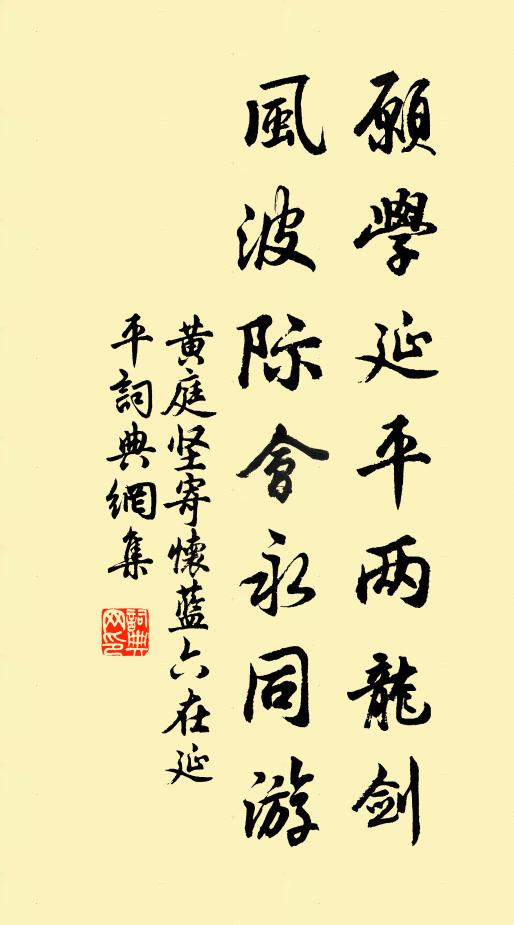 願學延平两龍劍
風波际會永同游
黄庭坚寄懷藍六在延
平詞典網集
詞典
网印